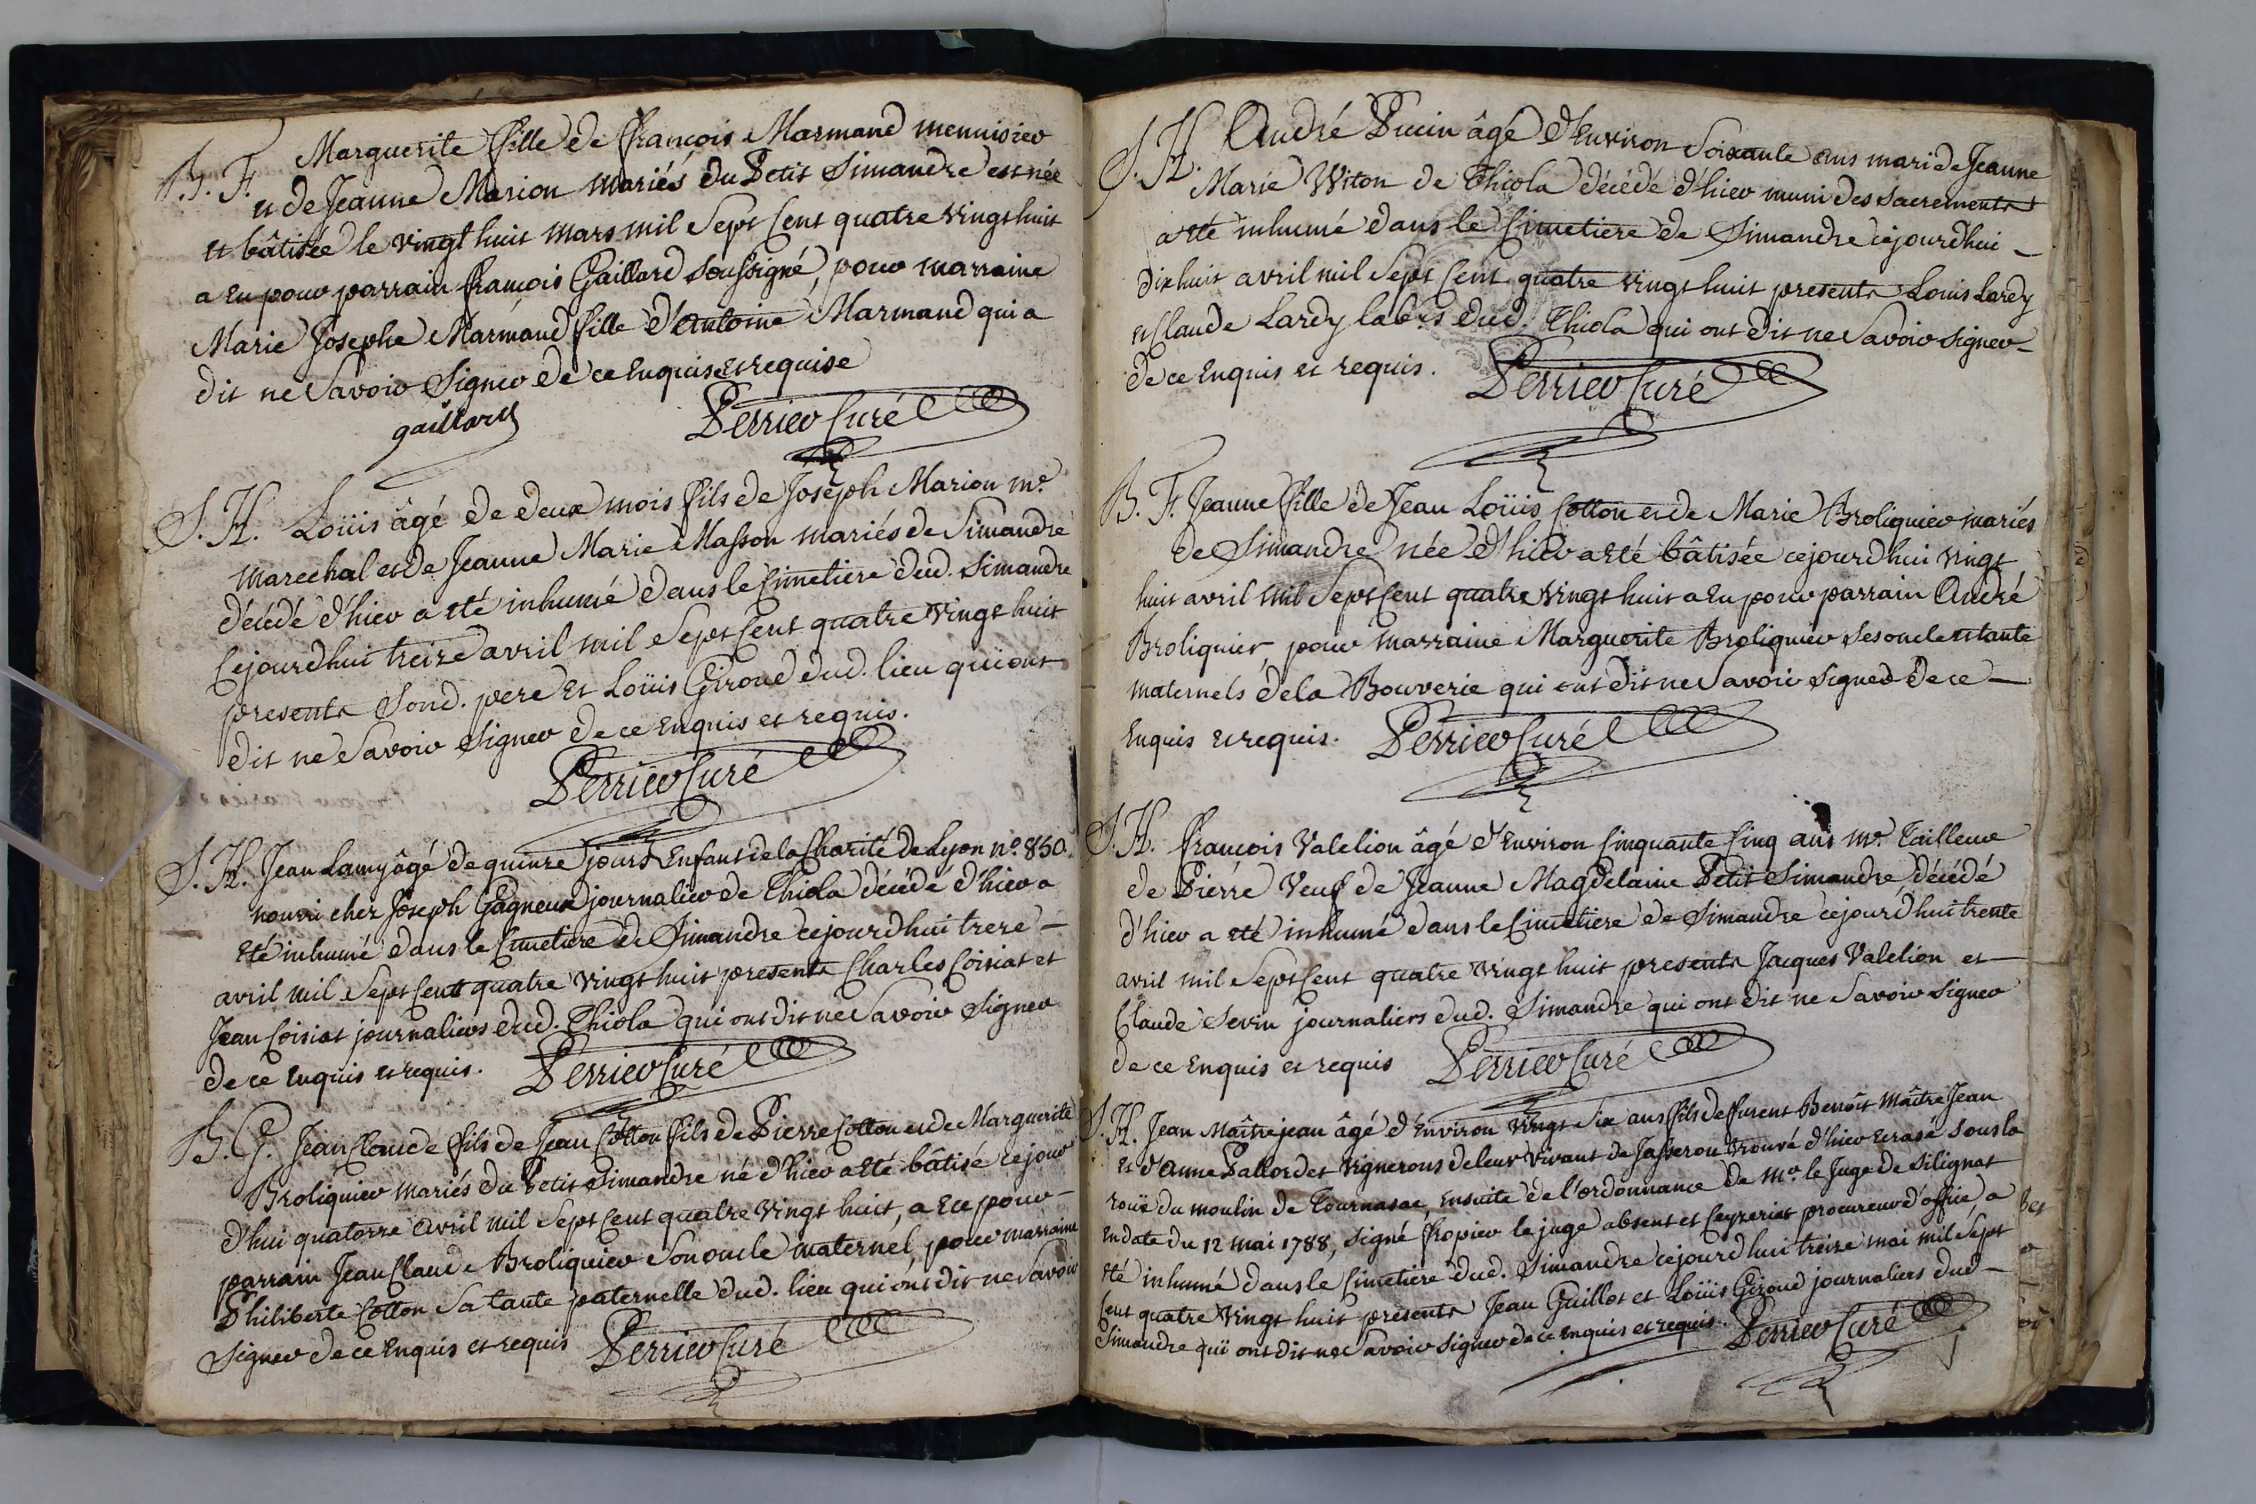 B. F. Marguerite fille de françois Marmand menuisier
et de Jeanne Marion mariés du Petit Simandre est née
et bâtisée le vingt huit mars mil sept cent quatre vingt huit
a eu pour parrain françois Gaillard soussigné, pour marraine
Marie Josephe Marmand fille d'antoine Marmand qui a
dit ne savoir signer de ce enquise et requise
gaillard Perrier Curé
S. H. Loüis âgé de deux mois fils de Joseph Marion me.
marechal et de Jeanne Marie Masson mariés de Simandre
décédé d'hier a eté inhumé dans le Cimetiere dud. Simandre
cejourdhui treize avril mil sept cent quatre vingt huit
presents sond. pere et Loüis Giroud dud. lieu qui ont
dit ne savoir signer de ce enquis et requis.
Perrier Curé
S. H. Jean Lamy âgé de quinze jours Enfant de la Charité de Lyon no. 850.
nourri chez Joseph Gagneux journalier de Thiola décédé d'hier a
eté inhumé dans le Cimetiere de Simandre cejourdhui treze
avril mil sept cent quatre vingt huit presents Charles Coisiat et
Jean Coisiat journaliers dud. Thiola qui ont dit ne savoir signer
de ce enquis et requis. Perrier Curé
B. G. Jean Claude fils de Jean Cotton fils de Pierre Cotton et de Marguerite
Broliquier mariés du Petit Simandre né d'hier a eté bâtisé cejour
d'hui quatorze avril mil sept cent quatre vingt huit, a eu pour
parrain Jean Claude Broliquier son oncle maternel, pour marraine
Philiberte Cotton sa tante paternelle dud. lieu qui ont dit ne savoir
signer de ce enquis et requis Perrier Curé
S. H. André Pucin âgé d'Environ soixante ans mari de Jeanne
Marie Witon de Thiola décédé d'hier muni des sacrements
a eté inhumé dans le Cimetiere de Simandre cejourdhui
dix huit avril mil sept cent quatre vingt huit presents Louis Lardy
et Claude Lardy labrs. dud. Thiola qui ont dit ne savoir signer
de ce enquis et requis. Perrier Curé
B. F. Jeanne fille de Jean Loüis Cotton et de Marie Broliquier mariés
de Simandre née d'hier a eté bâtisée cejourdhui vingt
huit avril mil sept cent quatre vingt huit a eu pour parrain André
Broliquier, pour marraine Marguerite Broliquier ses oncle et tante
maternels de la Bouverie qui ont dit ne savoir signer de ce
enquis et requis. Perrier Curé
S. H. françois Valelion âgé d'Environ cinquante cinq ans me. Tailleur
de Pierre Veuf de Jeanne Magdelaine Petit Simandre, décédé
d'hier a eté inhumé dans le Cimetiere de Simandre cejourd'hui trente
avril mil sept cent quatre vingt huit presents Jacques Valelion et
Claude Sevin journaliers dud. Simandre qui ont dit ne savoir signer
de ce enquis et requis Perrier Curé
S. H. Jean Maîtrejean âgé d'Environ vingt six ans fils de furent Benoit Maître Jean
et d'anne Pallordet vignerons de leur vivant de Jasseron trouvé d'hier ecrasé sous la
roüe du moulin de Tournasac, ensuite de l'ordonnance de mr. le Juge de Silignat
en date du 12 mai 1788, signé fropier le juge absent et Ceyzeriat procureur d'office, a
eté inhumé dans le Cimetiere dud. Simandre cejourdhui treize mai mil sept
cent quatre vingt huit presents Jean Guillot et Loüis Giroud journaliers dud
Simandre qui ont dit ne savoir signer de ce enquis et requis. Perrier Curé